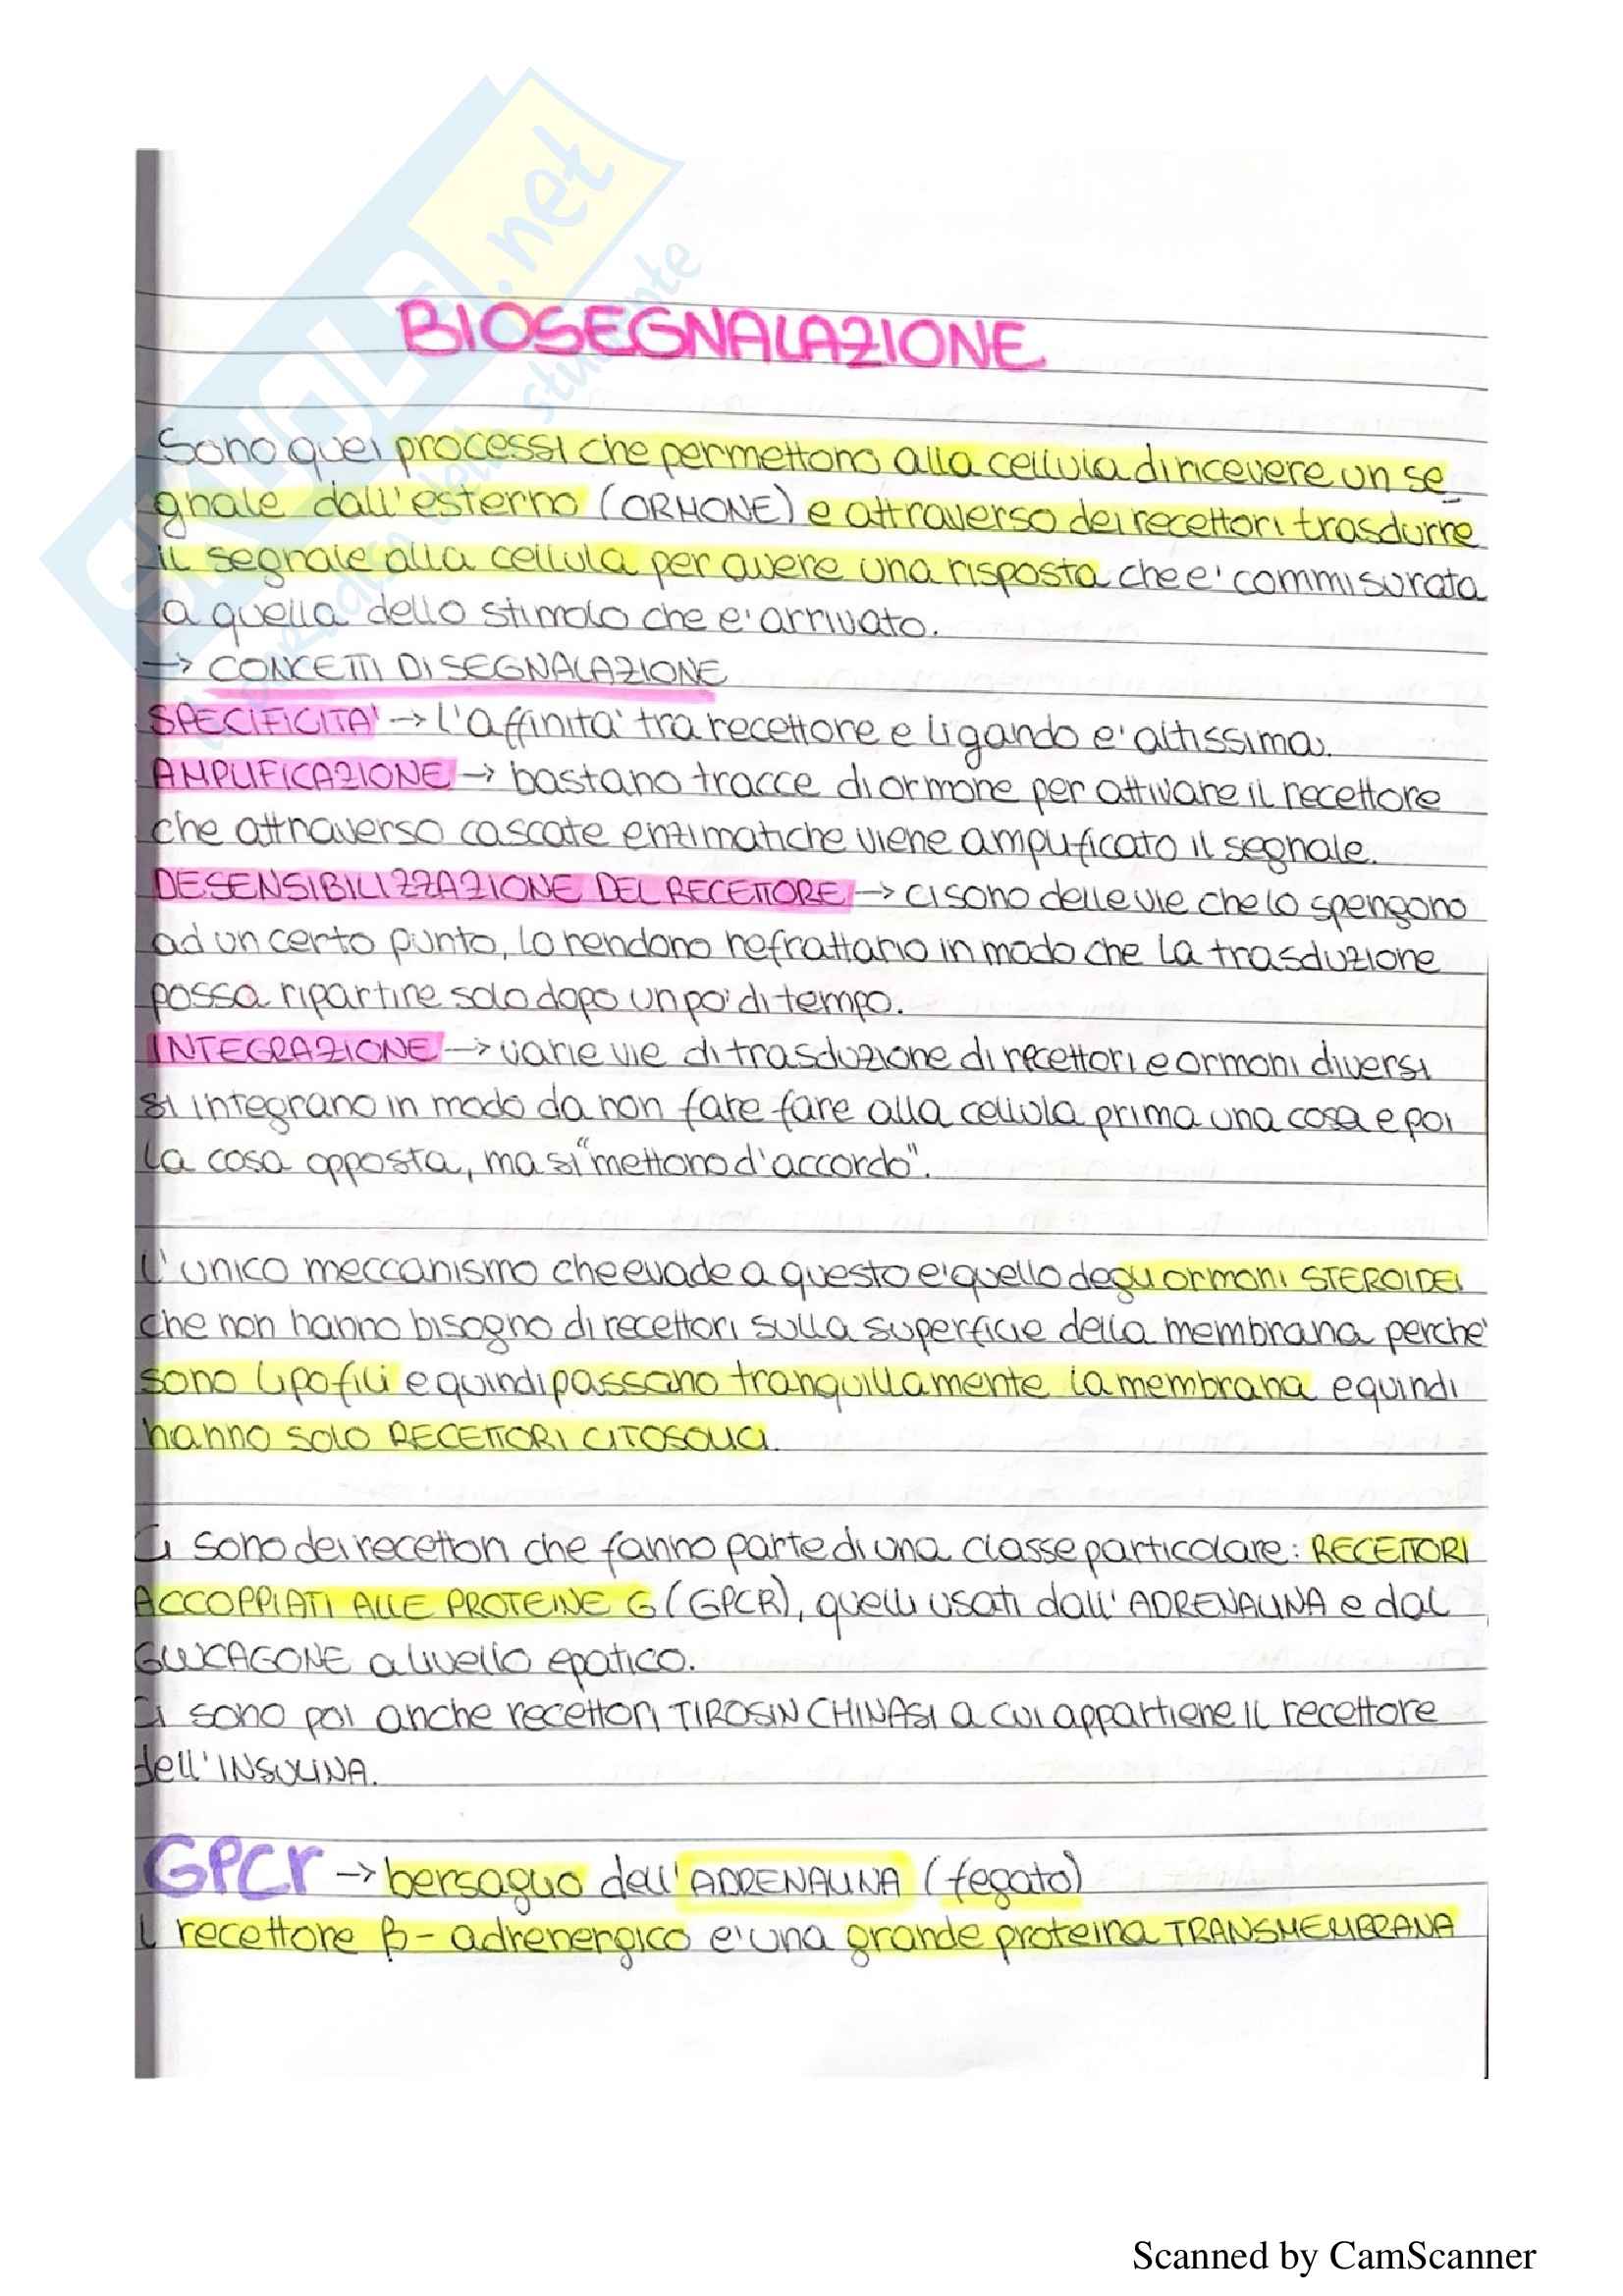 SKUOLA.net
il paradiso dello studente
BIOSEGNALAZIONE
Sono quei processi che permettono alla cellula di ricevere un se_
gnale dall'esterno (ORMONE) e attraverso dei recettori trasdurre
il segnale alla cellula per avere una risposta che e' commisurata
a quella dello stimolo che e' arrivato.
→ CONCETTI DI SEGNALAZIONE
SPECIFICITA' → L'affinita' tra recettore e ligando e' altissima.
AMPLIFICAZIONE → bastano tracce di ormone per attivare il recettore
che attraverso cascate enzimatiche viene amplificato il segnale.
DESENSIBILIZZAZIONE DEL RECETTORE → ci sono delle vie che lo spengono
ad un certo punto, lo rendono refrattario in modo che la trasduzione
possa ripartire solo dopo un po' di tempo.
INTEGRAZIONE → varie vie di trasduzione di recettori e ormoni diversi
si integrano in modo da non fare fare alla cellula prima una cosa e poi
la cosa opposta, ma si "mettono d'accordo".
L'unico meccanismo che evade a questo e' quello degli ormoni STEROIDEI
che non hanno bisogno di recettori sulla superficie della membrana perche'
sono lipofili e quindi passano tranquillamente la membrana e quindi
hanno solo RECETTORI CITOSOLICI.
Ci sono dei recettori che fanno parte di una classe particolare: RECETTORI
ACCOPPIATI ALLE PROTEINE G (GPCR), quelli usati dall'ADRENALINA e dal
GLUCAGONE a livello epatico.
Ci sono poi anche recettori TIROSIN CHINASI a cui appartiene il recettore
dell'INSULINA.
GPCr → bersaglio dell'ADRENALINA (fegato)
Il recettore β- adrenergico e' una grande proteina TRANSMEMBRANA
Scanned by CamScanner